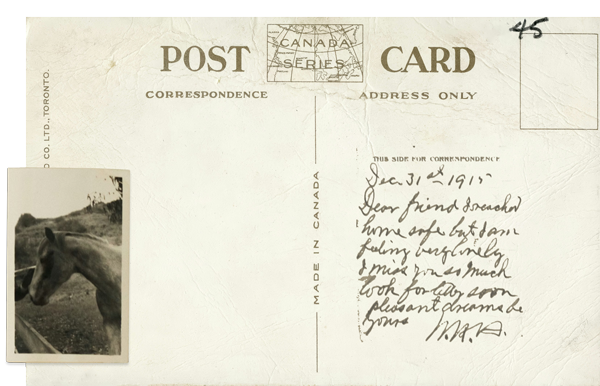 45
POST CARD
CANADA
SERIES
CORRESPONDENCE
ADDRESS ONLY
CO. LTD., TORONTO.
MADE IN CANADA
THIS SIDE FOR CORRESPONDENCE
Dec. 31st 1915
Dear friend I reached
home safe but I am
feeling very lonely
I miss you so much
look for letter soon
pleasant dreams be
yours